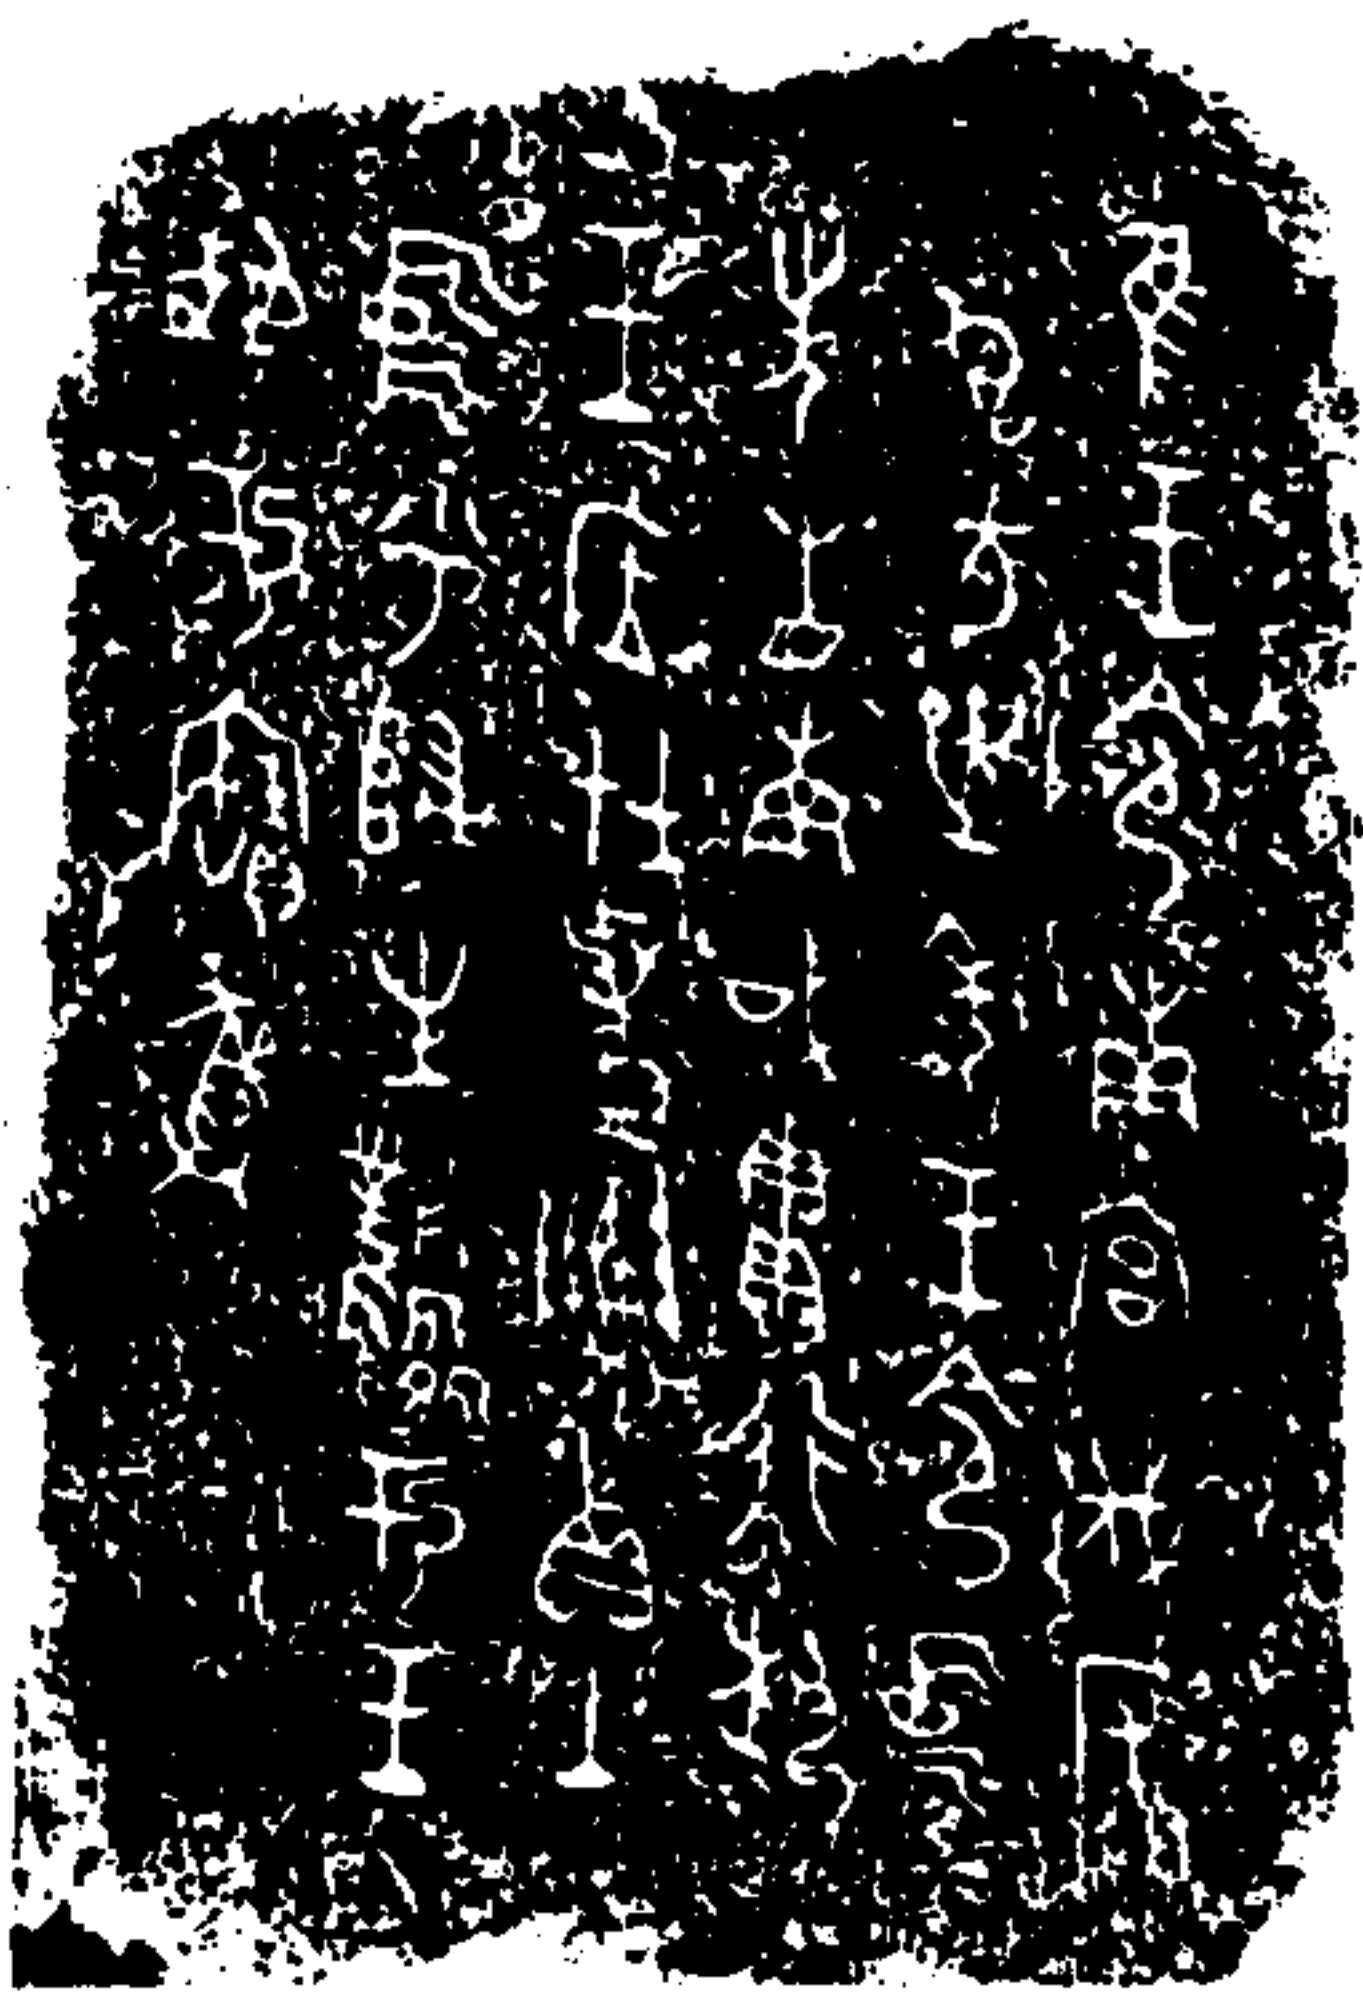 隹王令南宮伐反
虎方之年王令中
先省南或貫行埶
王㡴才夔𨻰真山
中乎歸生鳳于王
埶于寶彝